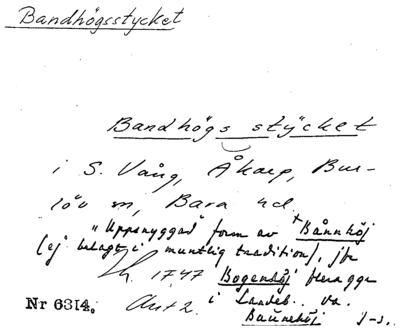 Bandhögsstycket
Bandhögs stycket
i S. Vång, Åkarp, Bur-
löv sn, Bara hd.
"Uppsnyggad" form av +Bånnhöj
(ej belagt i muntlig tradition), jfr
1747 Bogenhöj
Nr 6314. Akt 2. i Landeb..
Baunehöj